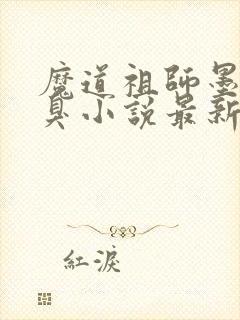 魔道祖師墨
臭小說最新
紅淚